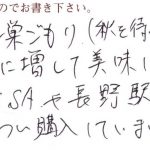 のでお書き下さい。
巣ごもり(秋を待
に増して美味し
SAや長野駅
つい購入していま